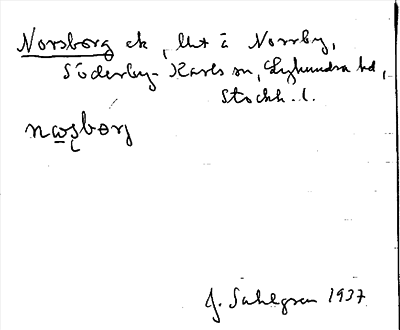 Norsborg ek, lht å Norrby,
Söderby-Karls sn, Lyhundra hd,
Stockh. l.
nɷşborg
J. Sahlgren 1937